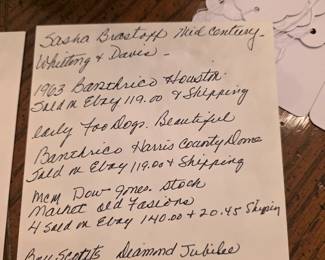 Sasha Brastoff Mid Century -
Whitting & Davis -
1963 Banthrico Houston.
Sold on Ebay 119.00 & Shipping
early Foo Dogs. Beautiful
Banthrico Harris County Dome
Sold on Ebay 119.00 & Shipping
MCM Dow Jones. Stock
Market old Fasions
4 Sold on Ebay 140.00 + 20.45 Shipping
Boy Scouts Diamond Jubilee